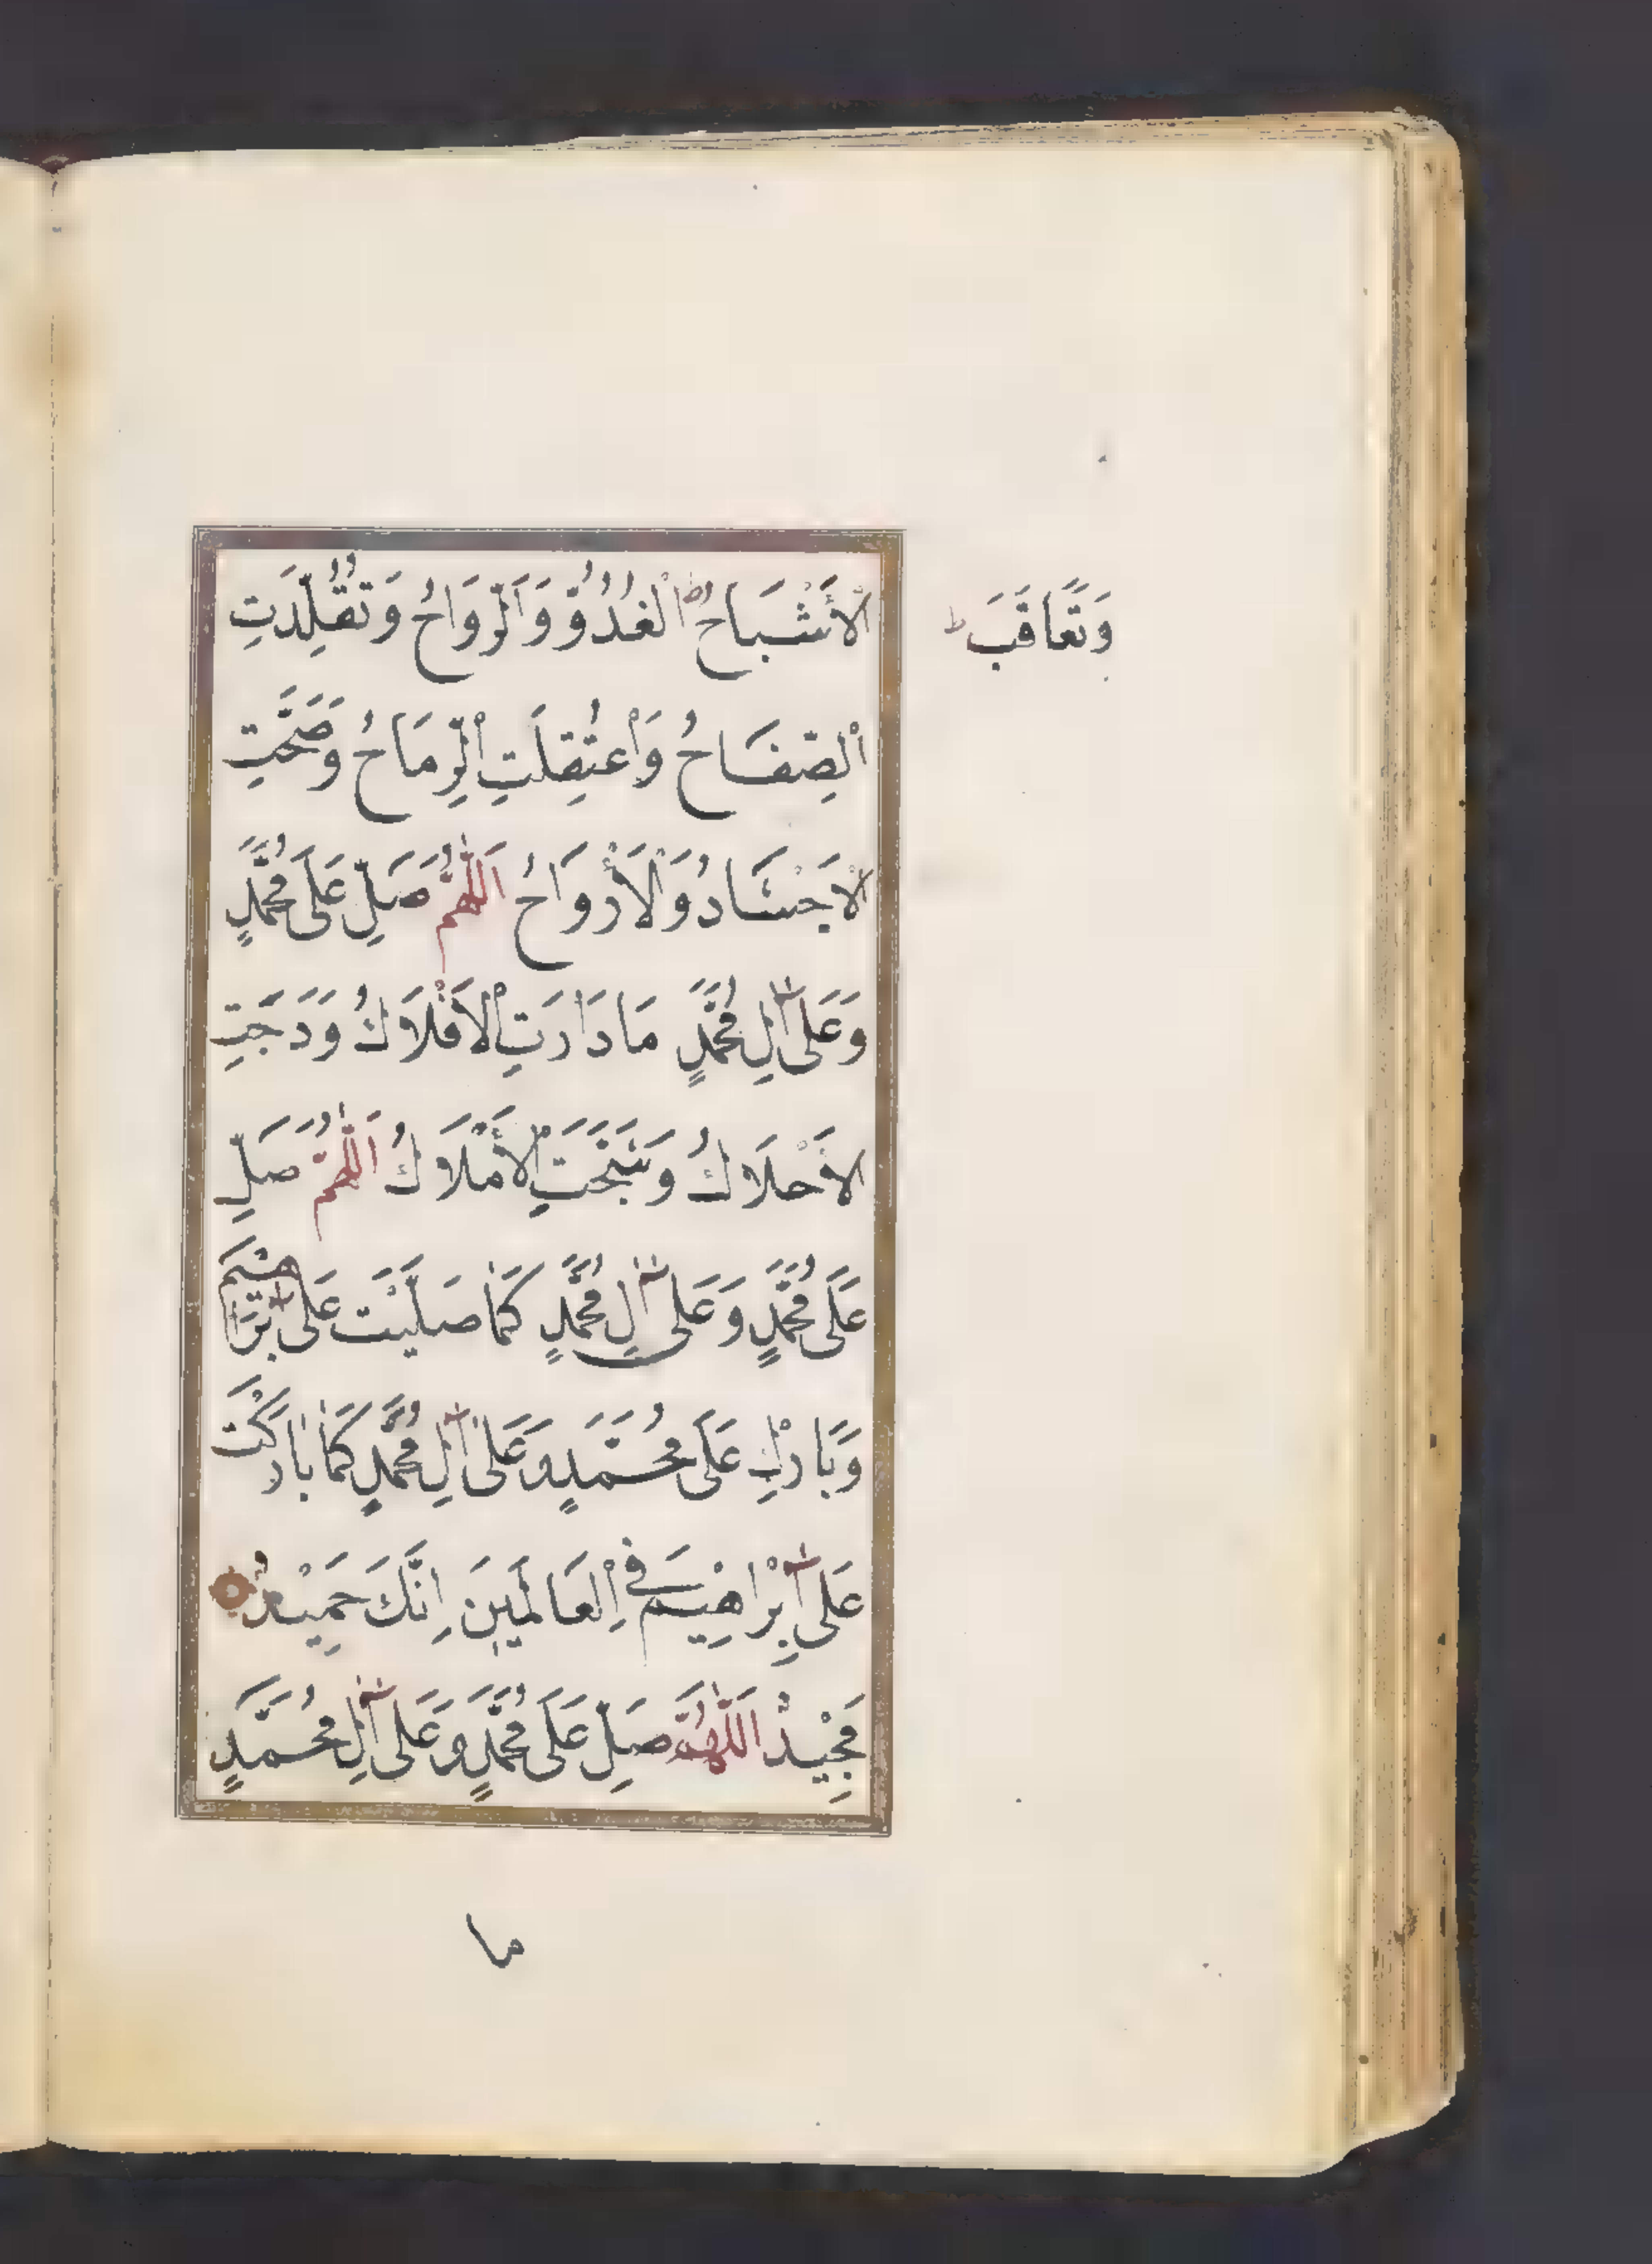 الْأَشْبَاحُ الْغُدُوُّ وَالرَّوَاحُ وَتُقُلِّدَتِ
وَتَعَاقَبَ
الصِّفَاحُ وَاعْتُقِلَتِ الرِّمَاحُ وَصَحَّتِ
الْأَجْسَادُ وَالْأَرْوَاحُ اَللّٰهُمَّ صَلِّ عَلَى مُحَمَّدٍ
وَعَلَى آلِ مُحَمَّدٍ مَا دَارَتِ الْأَفْلَاكُ وَدَجَتِ
الْأَحْلَاكُ وَسَبَّحَتِ الْأَمْلَاكُ اَللّٰهُمَّ صَلِّ
عَلَى مُحَمَّدٍ وَعَلَى آلِ مُحَمَّدٍ كَمَا صَلَّيْتَ عَلَى إِبْرَاهِيمَ
وَبَارِكْ عَلَى مُحَمَّدٍ وَعَلَى آلِ مُحَمَّدٍ كَمَا بَارَكْتَ
عَلَى إِبْرَاهِيمَ فِي الْعَالَمِينَ اِنَّكَ حَمِيْدٌ
مَجِيْدٌ اَللّٰهُمَّ صَلِّ عَلَى مُحَمَّدٍ وَعَلَى آلِ مُحَمَّدٍ
ما